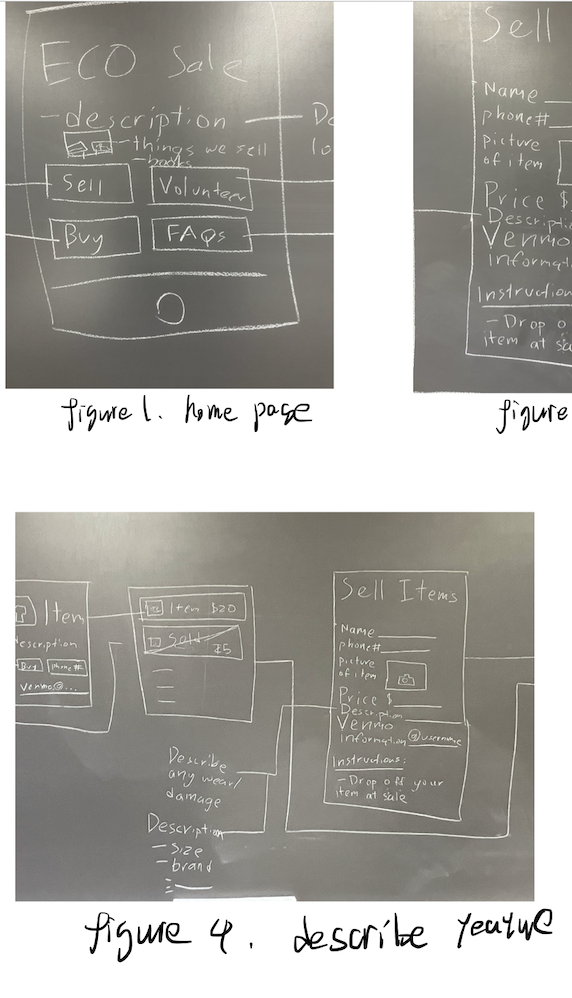 ECO Sale
- description
- things we sell
- books
Sell
Volunteer
Buy
FAQs
figure 1. home page
Sell
Name
phone#
picture
of item
Price $
Descripti
Venmo
Informat
Instruction
- Drop o
item at sa
figure
Item
description
Buy phone #
Venmo@...
Item $20
Sold
Describe
any wear/
damage
Description
- size
- brand
Sell Items
Name
phone#
picture
of item
Price $
Description
Venmo
Information @username
Instructions:
- Drop off your
item at sale
figure 4. describe feature